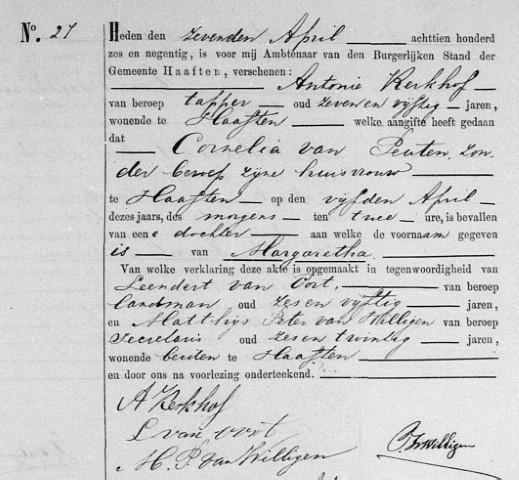 No. 27
Heden den zevenden April achttien honderd
zes en negentig, is voor mij Ambtenaar van den Burgerlijken Stand der
Gemeente Haaften, verschenen:
Antonie Kerkhof
van beroep tapper oud zeven en vijftig jaren,
wonende te Haaften welke aangifte heeft gedaan
dat
Cornelia van Peuten, zon
der beroep zijne huisvrouw
te Haaften op den vijfden April
dezes jaars, des morgens ten twee ure, is bevallen
van eene dochter aan welke de voornaam gegeven
is van Margaretha.
Van welke verklaring deze akte is opgemaakt in tegenwoordigheid van
Leendert van Oort, van beroep
landman oud zes en vijftig jaren,
en Matthijs Peter van Willigen van beroep
secretaris oud zes en twintig jaren,
wonende beiden te Haaften
en door ons na voorlezing onderteekend.
A Kerkhof
L van Oort
M. P. van Willigen